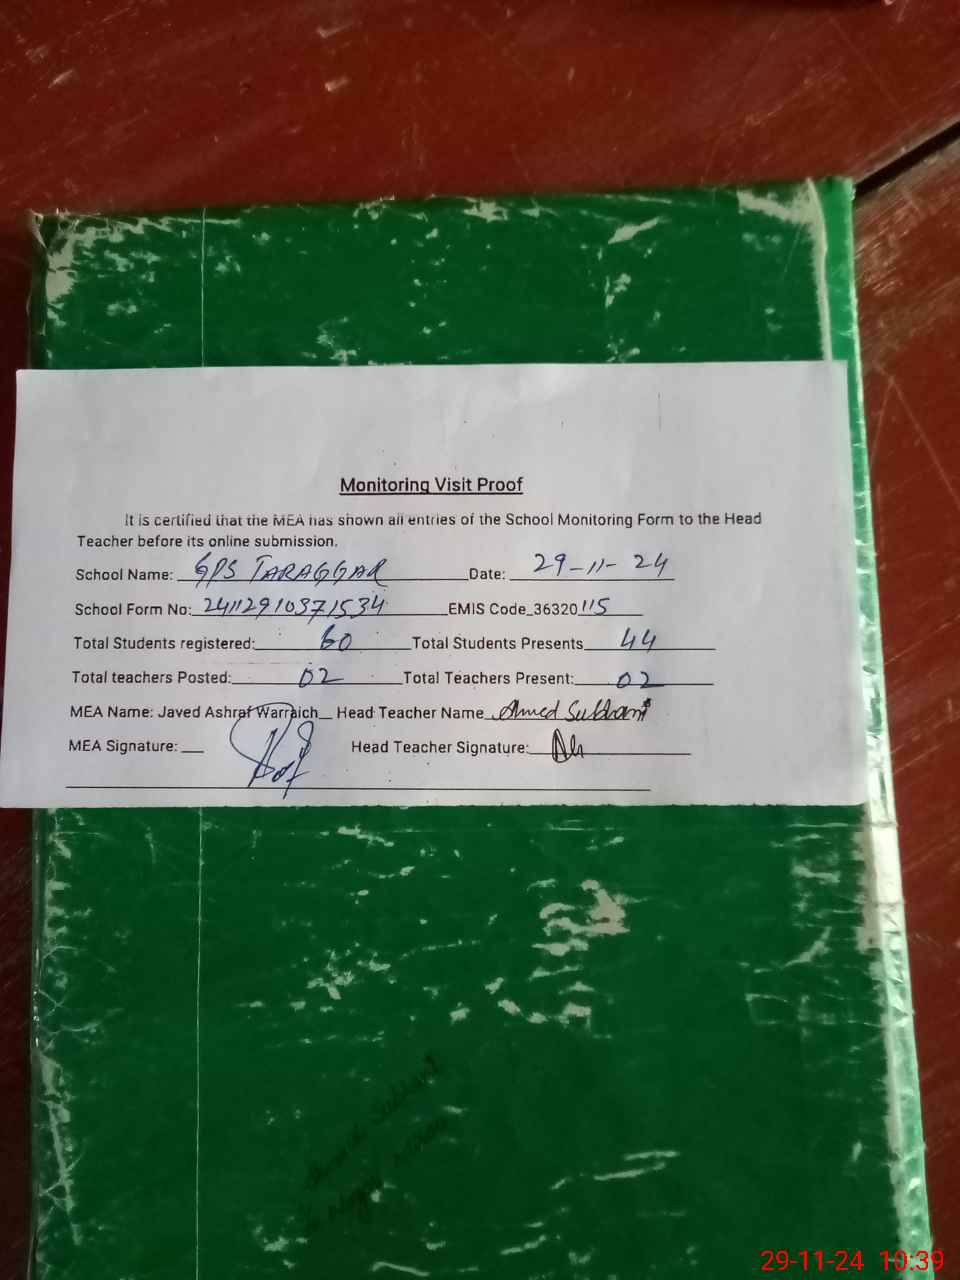 Monitoring Visit Proof
It is certified that the MEA has shown all entries of the School Monitoring Form to the Head
Teacher before its online submission.
School Name: GPS TARAGGAR Date: 29-11-24
School Form No: 24112910371534 EMIS Code_36320115
Total Students registered: 60 Total Students Presents 44
Total teachers Posted: 02 Total Teachers Present: 02
MEA Name: Javed Ashraf Warraich Head Teacher Name Ahmed Subhani
MEA Signature: Head Teacher Signature:
Subhani
29-11-24 10:39